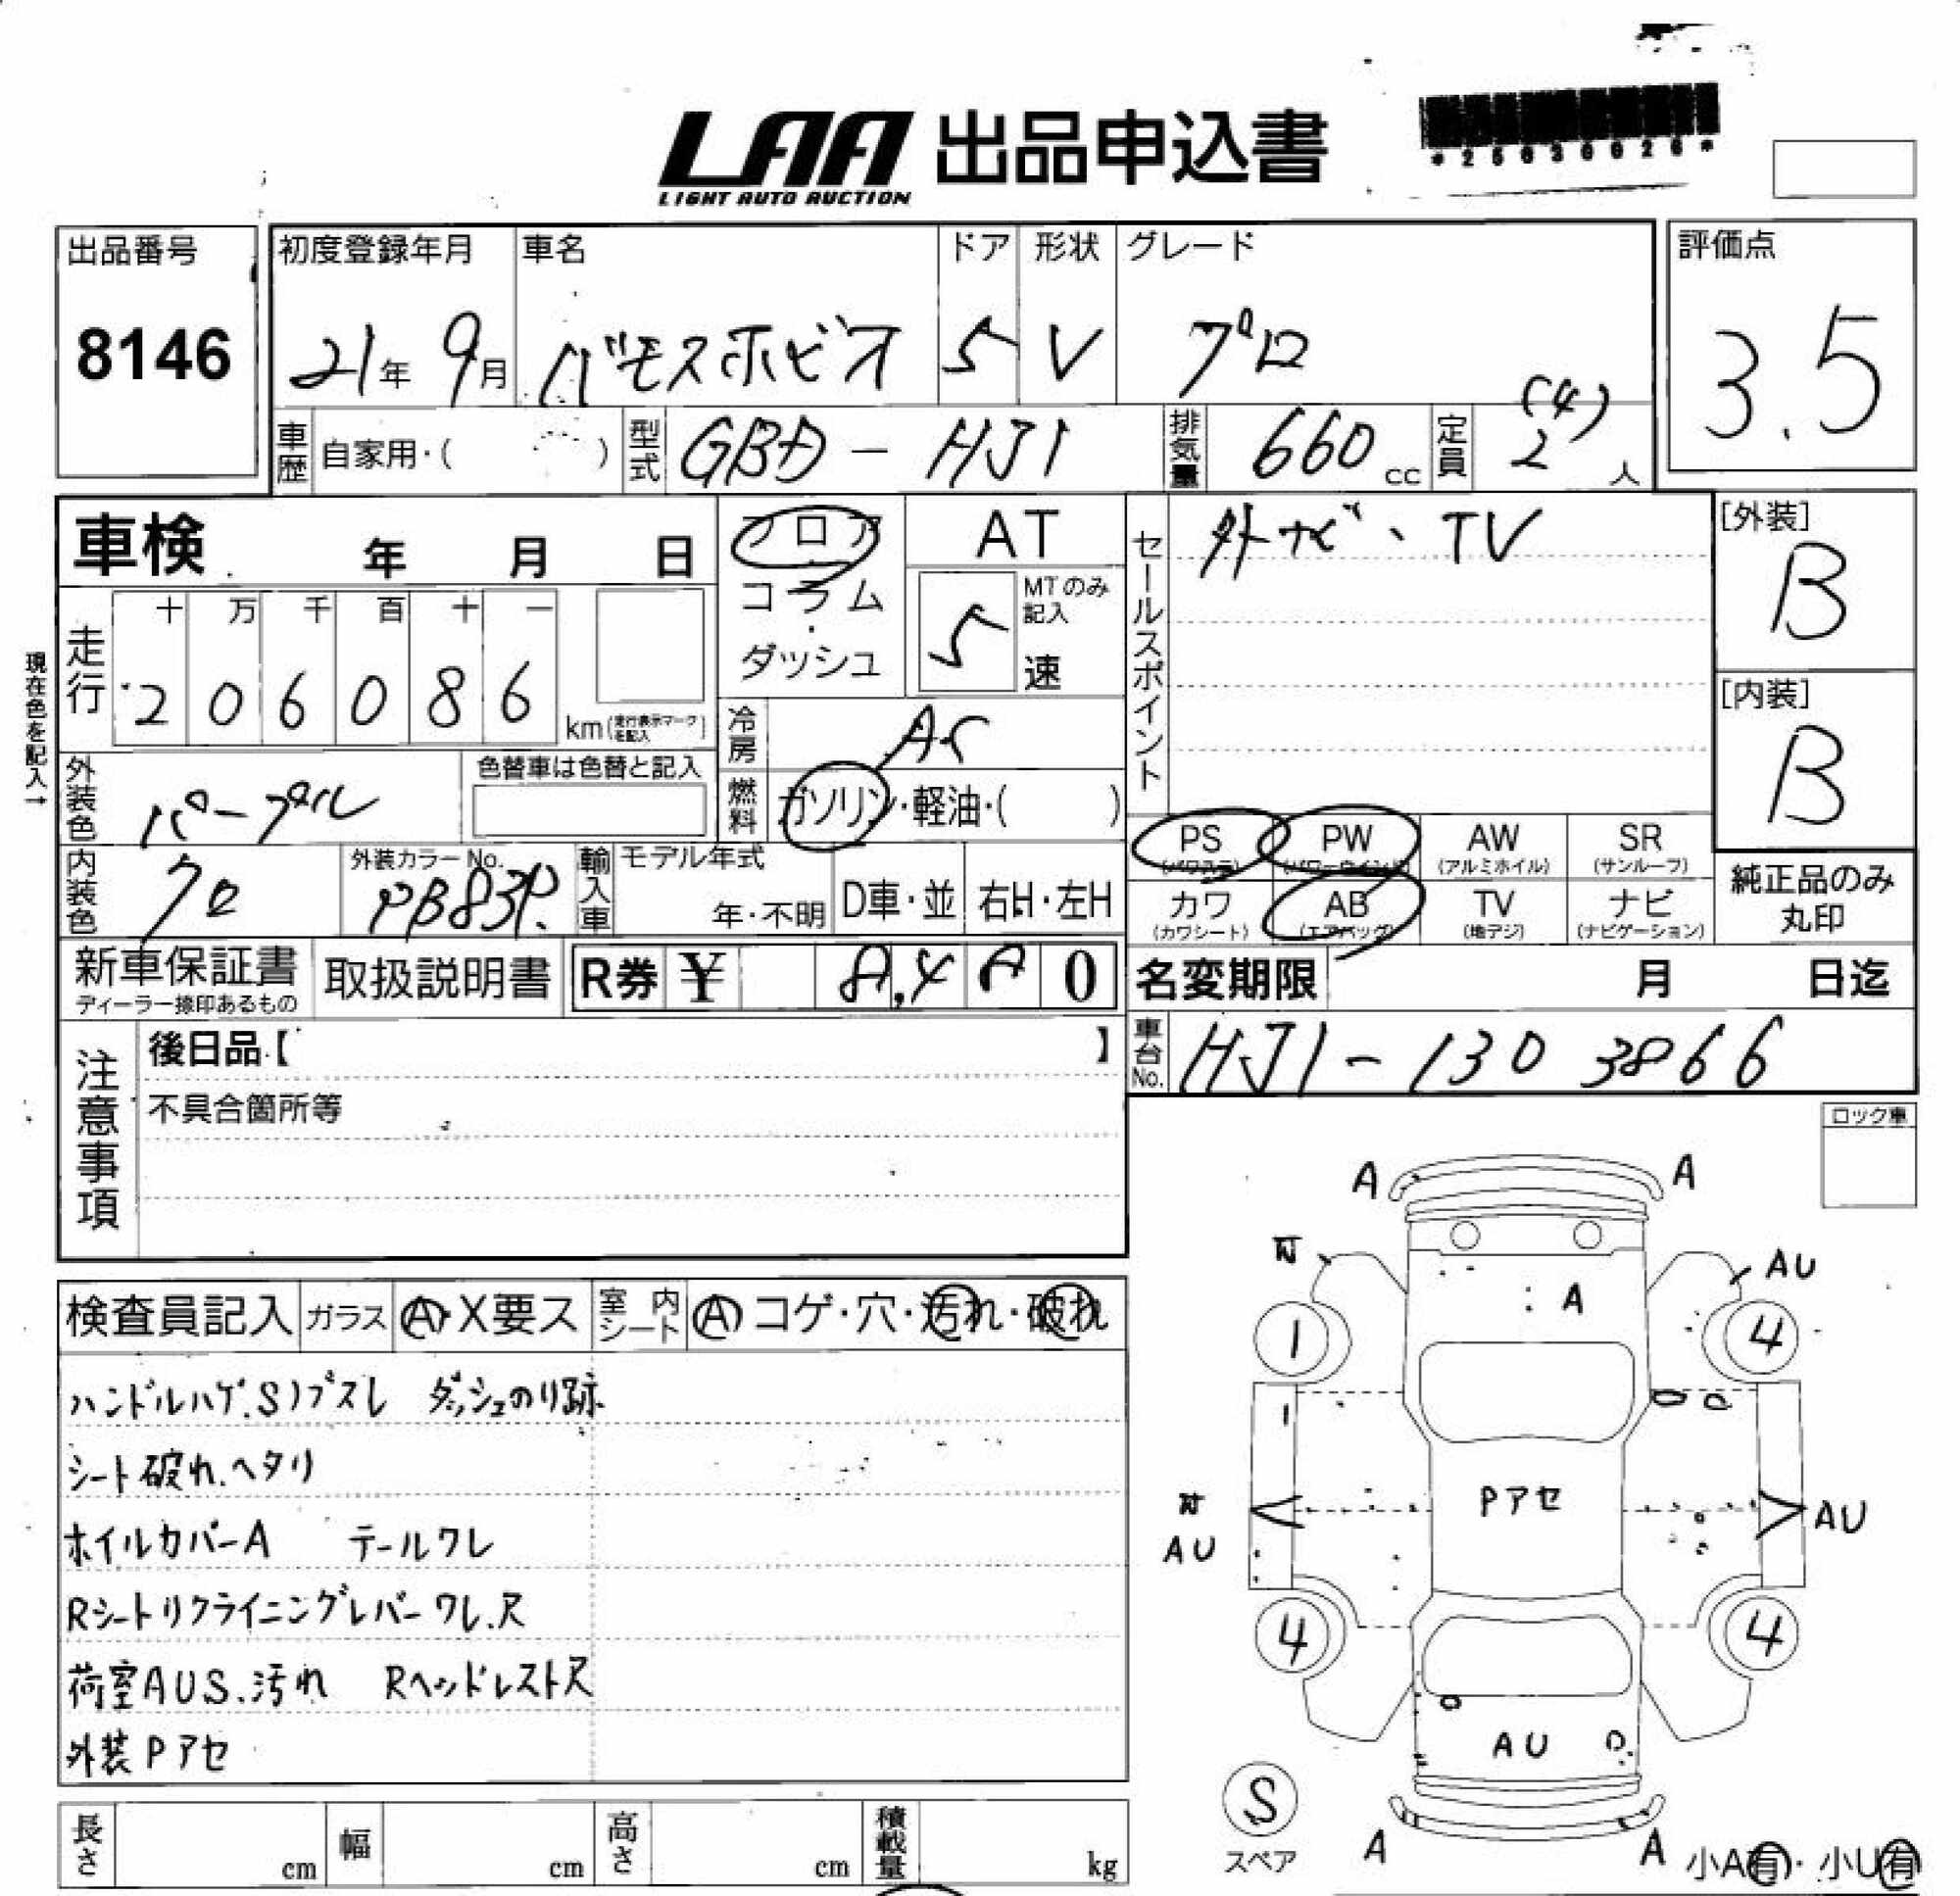 LAA 出品申込書
LIGHT AUTO AUCTION
*25030026*
出品番号
8146
初度登録年月
21年 9月
車名
バモスホビオ
ドア
5
形状
V
グレード
プロ
評価点
3.5
車歴 自家用・( )
型式 GBD-HJ1
排気量 660 cc
定員 (4) 2 人
車検 年 月 日
フロア・コラム・ダッシュ
AT
MTのみ記入
5 速
セールスポイント
外ナビ、TV
[外装]
B
[内装]
B
現在色を記入→
走行
十 万 千 百 十 一
2 0 6 0 8 6 km(走行表示マークを記入)
冷房 AC
燃料 ガソリン・軽油・( )
外装色 パープル
色替車は色替と記入
内装色 クロ
外装カラーNo.
PB83P.
輸入車 モデル年式
年・不明
D車・並
右H・左H
PS (パワステ)
PW (パワーウインド)
AW (アルミホイル)
SR (サンルーフ)
カワ (カワシート)
AB (エアバッグ)
TV (地デジ)
ナビ (ナビゲーション)
純正品のみ丸印
新車保証書
ディーラー捺印あるもの
取扱説明書
R券 ¥
0
名変期限 月 日迄
車台No. HJ1-130 3866
注意事項
後日品【 】
不具合箇所等
ロック車
検査員記入 ガラス A・X要ス 室内シート A コゲ・穴・汚れ・破れ
ハンドルハゲ.S ノブスレ ダッシュのり跡
シート破れ.ヘタリ
ホイルカバーA テールワレ
Rシートリクライニングレバーワレ.欠
荷室AUS.汚れ Rヘッドレスト欠
外装Pアセ
A A
AU
A
1 4
Pアセ
AU AU
4 4
AU
S
スペア
A A
小A有・小U有
長さ cm 幅 cm 高さ cm 積載量 kg